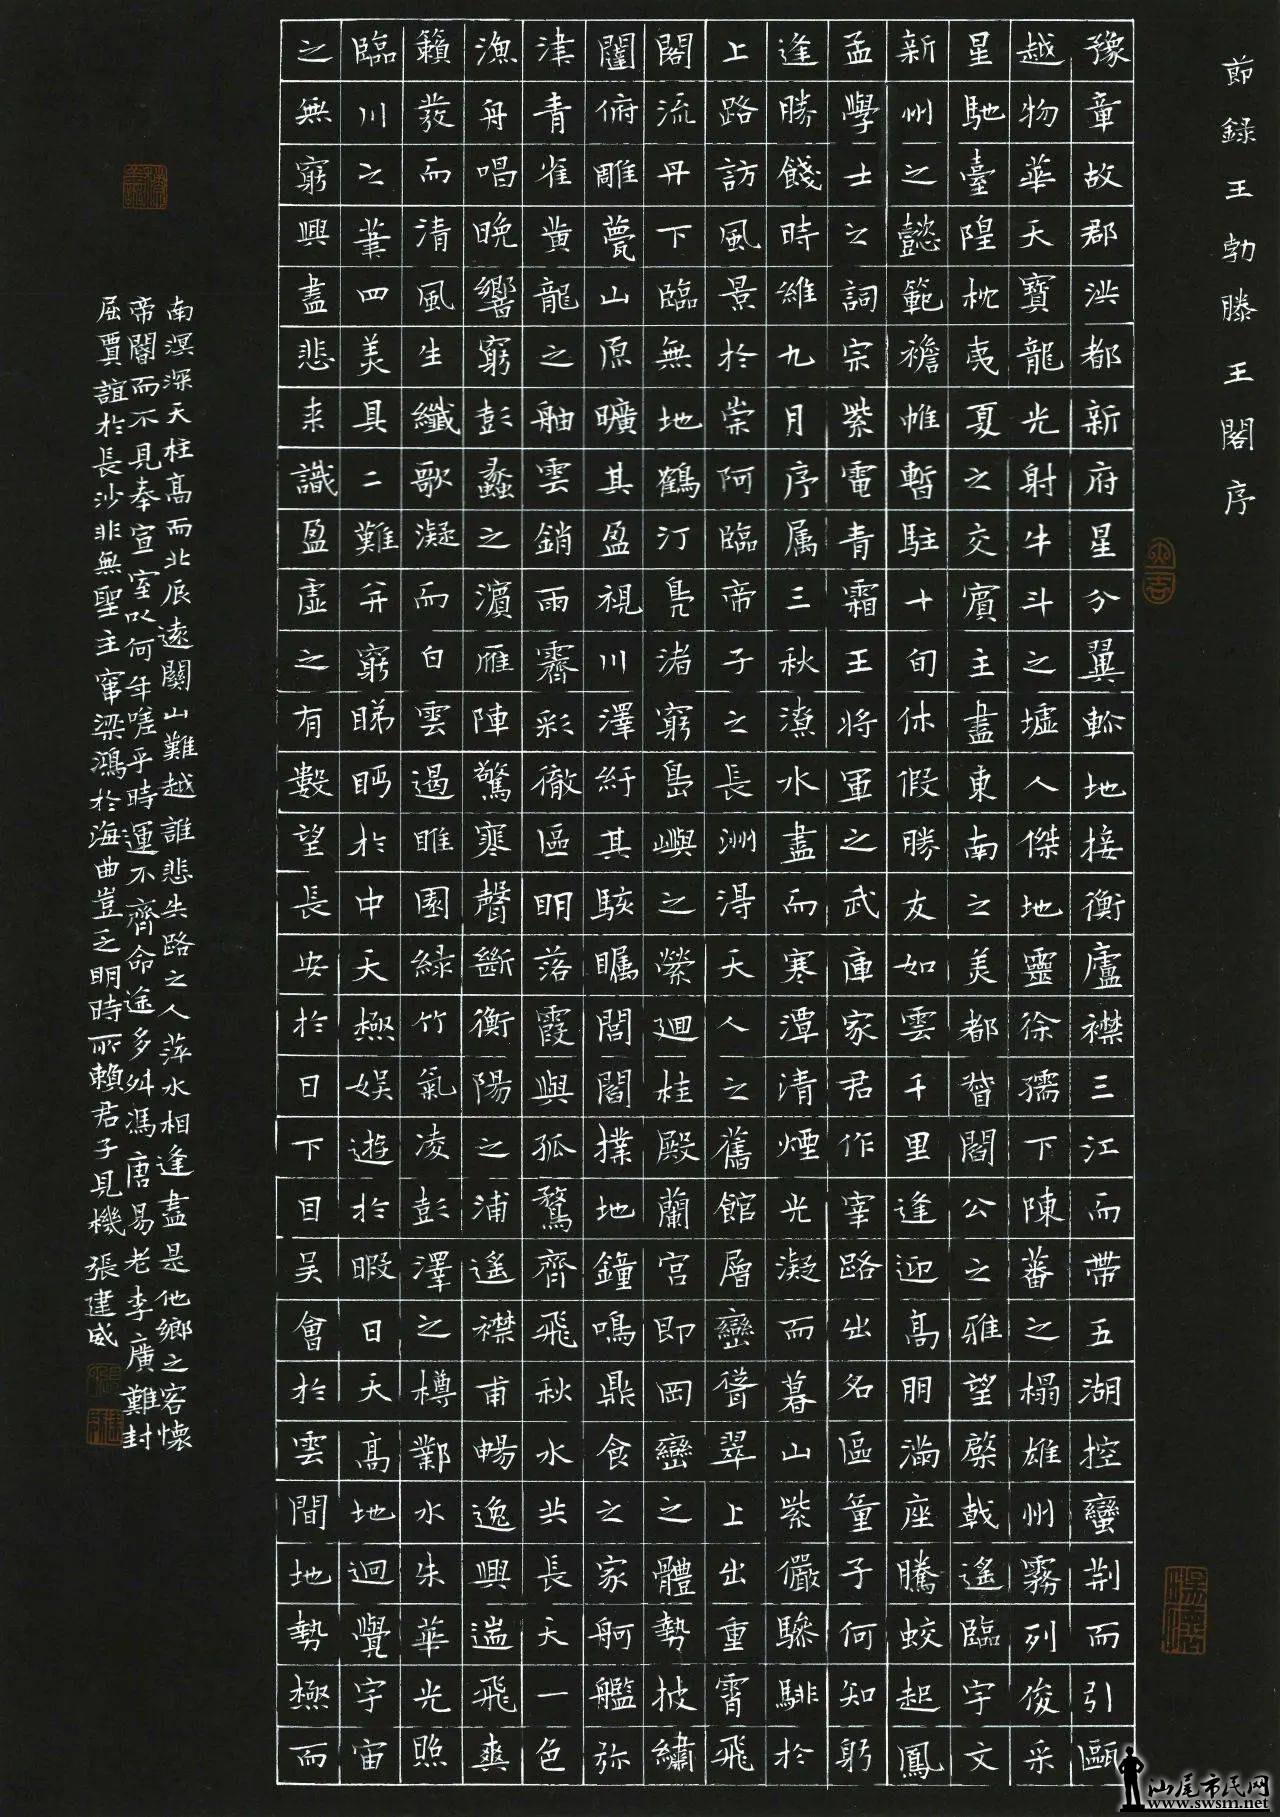 節錄王勃滕王閣序
豫章故郡洪都新府星分翼軫地接衡廬襟三江而帶五湖控蠻荊而引甌
越物華天寶龍光射牛斗之墟人傑地靈徐孺下陳蕃之榻雄州霧列俊采
星馳臺隍枕夷夏之交賓主盡東南之美都督閻公之雅望棨戟遙臨宇文
新州之懿範襜帷暫駐十旬休假勝友如雲千里逢迎高朋滿座騰蛟起鳳
孟學士之詞宗紫電青霜王將軍之武庫家君作宰路出名區童子何知躬
逢勝餞時維九月序属三秋潦水盡而寒潭清煙光凝而暮山紫儼驂騑於
上路訪風景於崇阿臨帝子之長洲得天人之舊館層巒聳翠上出重霄飛
閣流丹下臨無地鶴汀鳧渚窮島嶼之縈迴桂殿蘭宮即岡巒之體勢披繡
闥俯雕甍山原曠其盈視川澤紆其駭矚閭閻撲地鐘鳴鼎食之家舸艦弥
津青雀黄龍之舳雲銷雨霽彩徹區明落霞與孤鶩齊飛秋水共長天一色
漁舟唱晚響窮彭蠡之濱雁陣驚寒聲斷衡陽之浦遙襟甫暢逸興遄飛爽
籟發而清風生纖歌凝而白雲遏睢園綠竹氣凌彭澤之樽鄴水朱華光照
臨川之筆四美具二難并窮睇眄於中天極娛遊於暇日天高地迥覺宇宙
之無窮興盡悲来識盈虛之有數望長安於日下目吳會於雲間地勢極而
南溟深天柱高而北辰遠關山難越誰悲失路之人萍水相逢盡是他鄉之客懷
帝閽而不見奉宣室以何年嗟乎時運不齊命途多舛馮唐易老李廣難封
屈賈誼於長沙非無聖主竄梁鴻於海曲豈乏明時所賴君子見機張建威
汕尾市民网
www.swsm.net